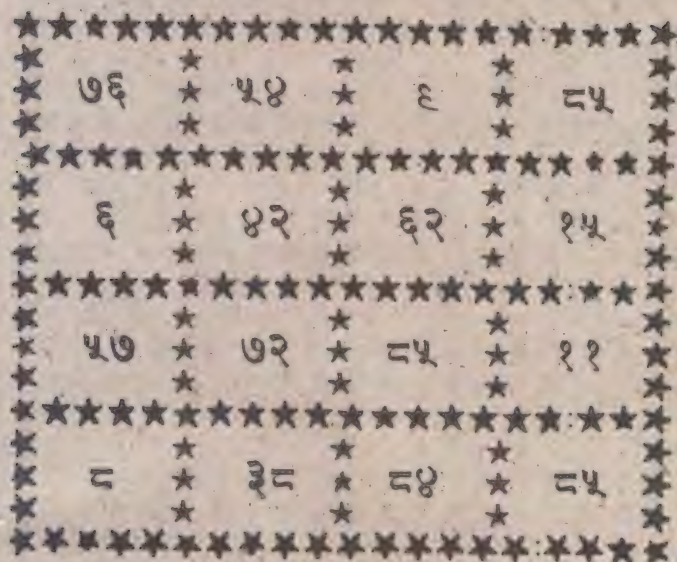 ७६ ५४ ६ ८५
६ ४२ ६२ १५
५७ ७२ ८५ ११
८ ३८ ८४ ८५